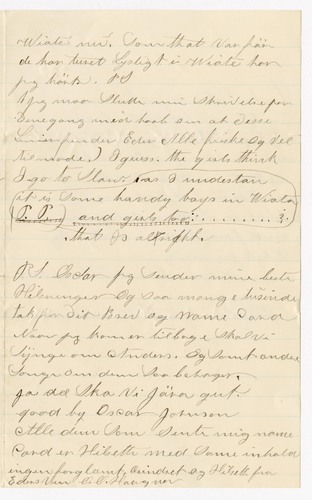 Wiate nu. Som that var før
de har turet Lystigt i Wiate har
jeg hørt. P.S
Jeg maa Slutte min Skrivelse for
Denegang med haab om at disse
Linier finder Eder Alle friske og Vel
tilmode. I guess. the girls think
I go to Slow. as I understan
it is some handy boys in Wiata
P. P. and girls too ........ ?.
that Is allright.
P.S Oscar jeg Sender mine beste
Hilsninger Og saa mange tusinde
tak for Dit Brev og Name Card
Naar jeg kommer tilbage Skal Vi
Synge om Anders. Og Somt andre
Songe om dem Saa behager.
ja da Ska Vi Jära gut
good by Oscar Johnson
Alle dem Som Sente mig name
Card er Hilsett med Samme inhold
ingen forglemt, Guindet og Hilsett fra
Eders Ven O.C.